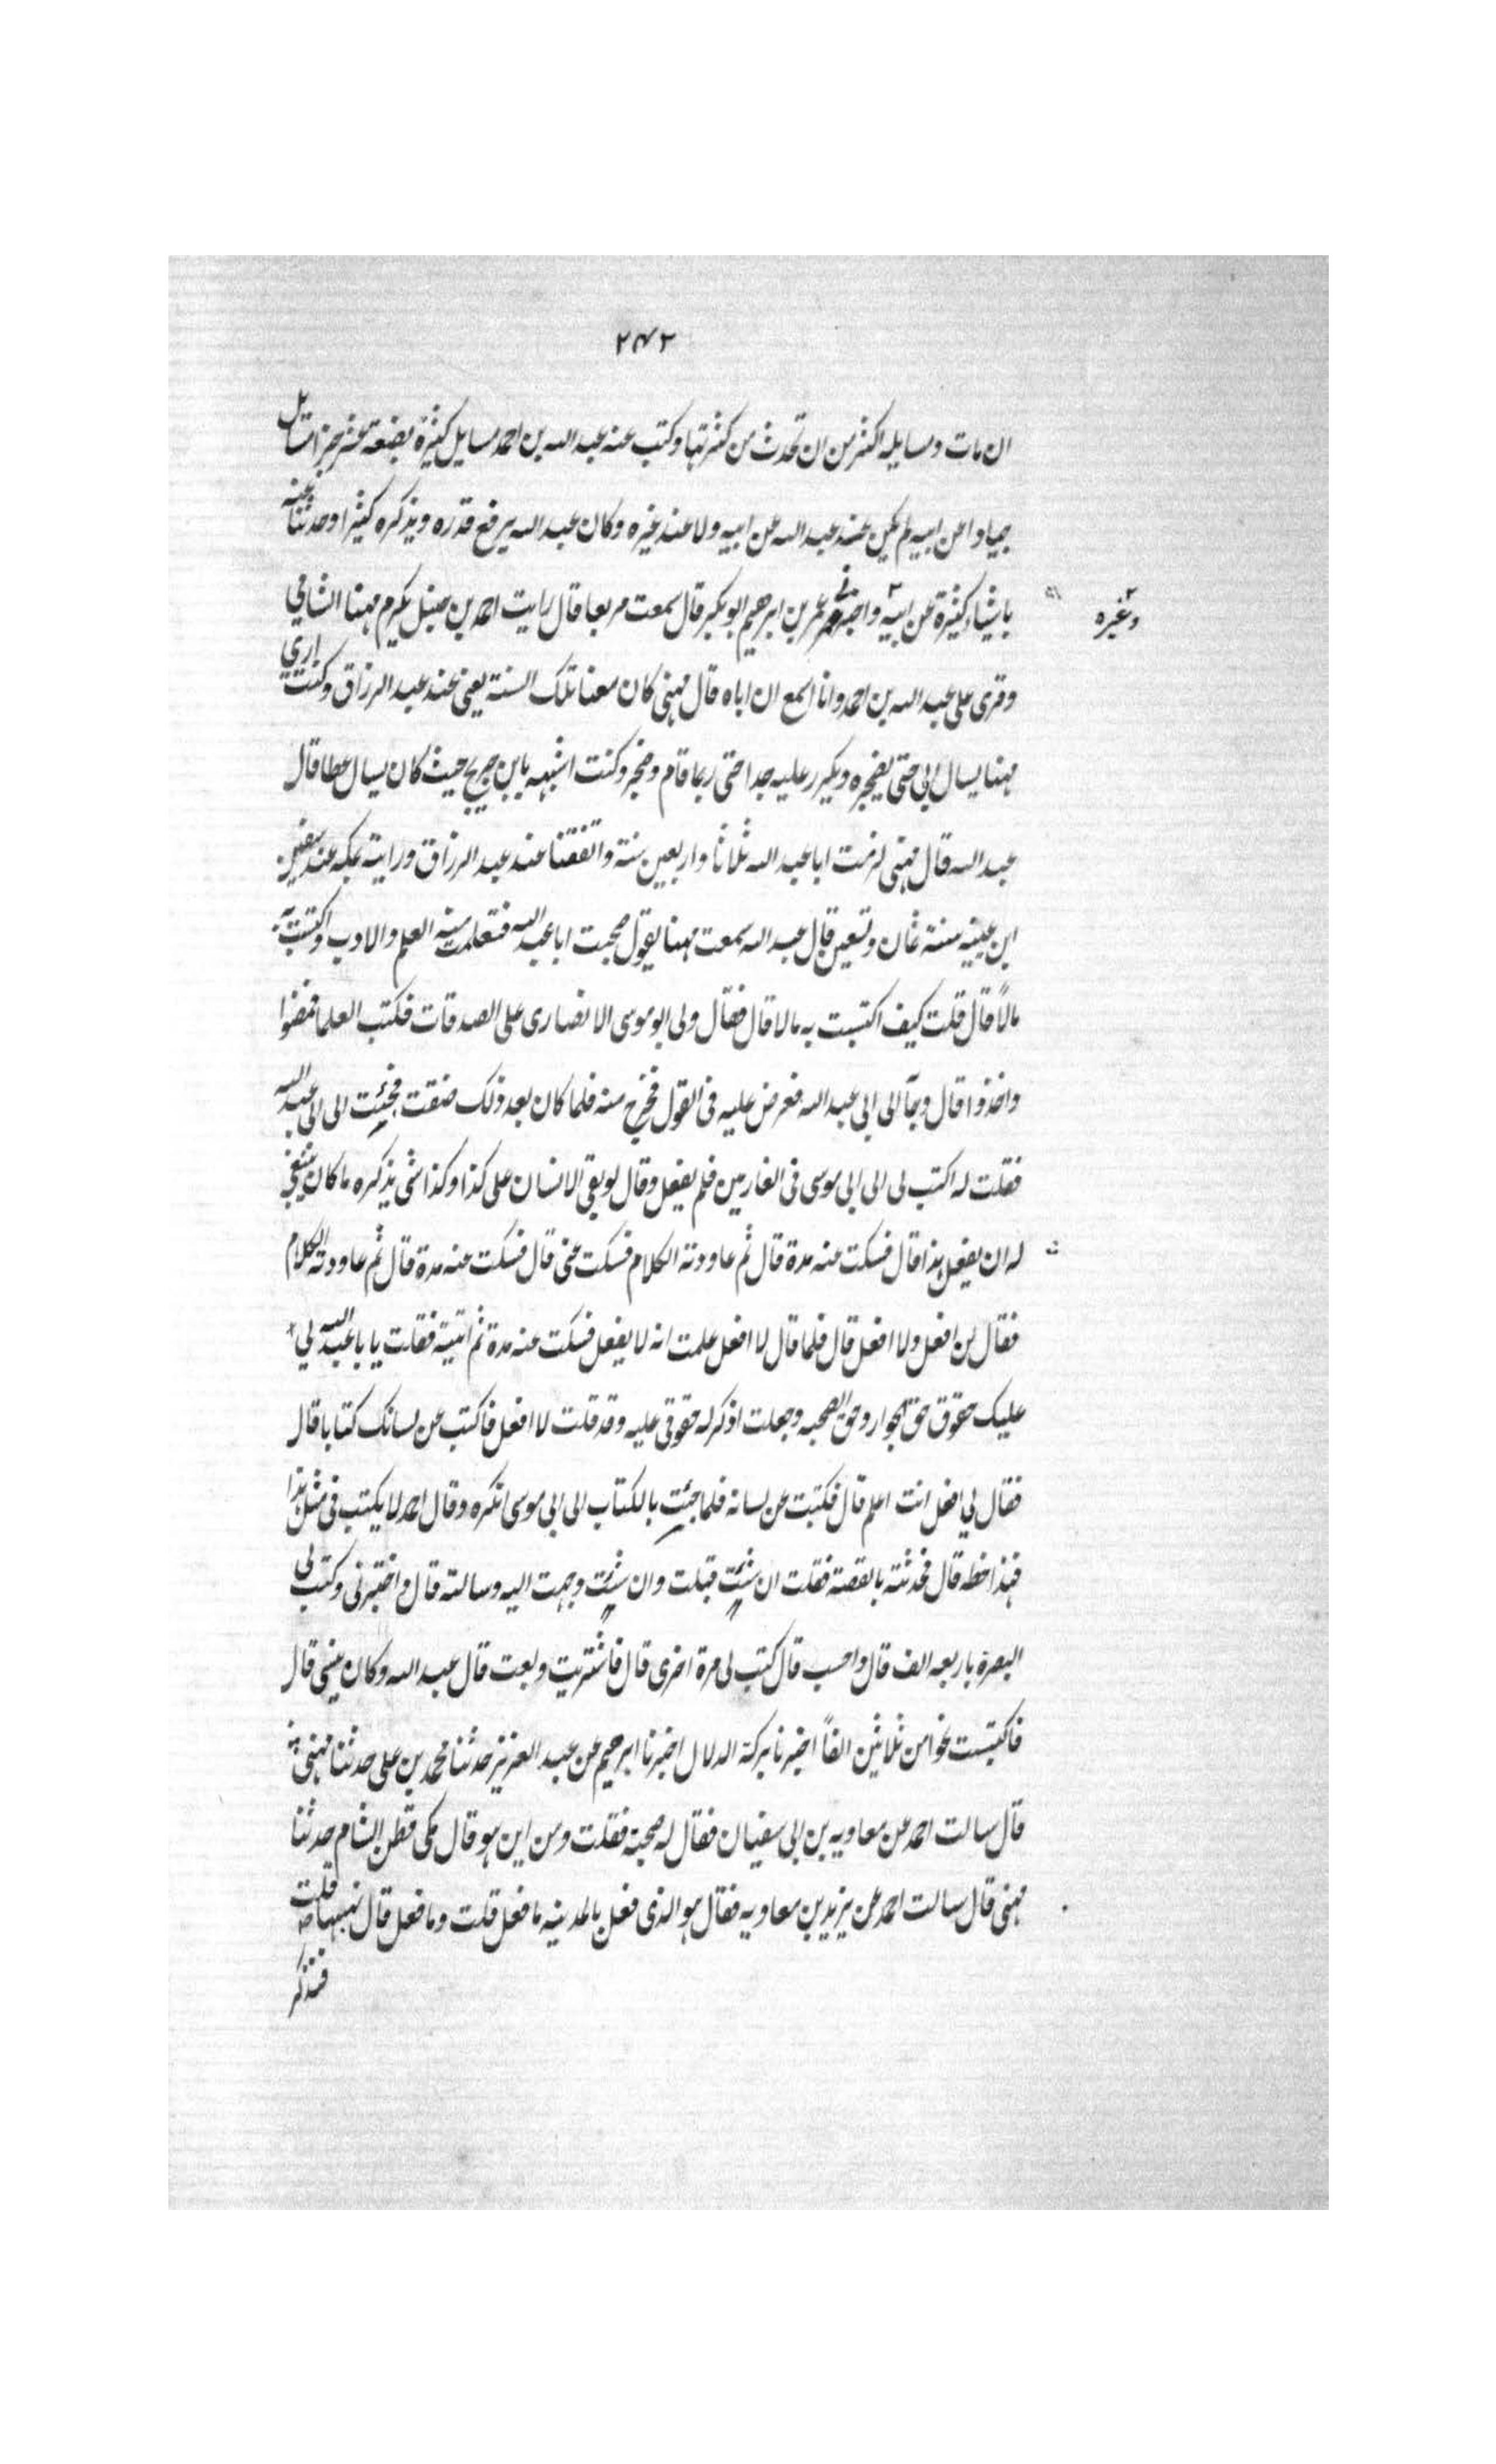 ٢٤٢
ان مات ومسايله اكثر من ان تحدث من كثرتها وكتب عنه عبد الله بن احمد مسايل كثيرة بضعة عشر جزا مسائل
عن ابيه لم يكن عند عبد الله عن ابيه ولا عند غيره وكان عبد الله يرفع قدره ويذكره كثيرا وحدثنا عنه
باشياء كثيرة عن ابيه واخبرني عمر بن ابرهيم ابو بكر قال سمعت مربعا قال رايت احمد بن حنبل يكرم مهنا الشامي
وغيره
وقرى على عبد الله بن احمد وانا اسمع ان اباه قال مهنى كان معنا تلك السنة يعني عند عبد الرزاق وكنت ارى
مهنا يسال ابي حتى يضجره ويكرر عليه جدا حتى ربما قام وضجر وكنت اشبهه بابن جريج حيث كان يسال عطا قال
عبد الله قال مهنى لزمت ابا عبد الله ثلاثا واربعين سنة واتفقنا عند عبد الرزاق ورايته بمكه عند سفين
ابن عيينه سنة ثمان وتسعين قال عبد الله سمعت مهنا يقول صحبت ابا عبد الله فتعلمت منه العلم والادب واكتسبت به
مالاً قال قلت كيف اكتسبت به مالا قال فقال ولى ابو موسى الانصارى على الصدقات فكتب العلما فمضوا
واخذوا قال وجآ الى ابي عبد الله فعرض عليه فى القول فخرج منه فلما كان بعد ذلك ضقت فجئت الى ابى عبد الله
فقلت له اكتب لى الى ابى موسى فى الغارمين فلم يفعل وقال لو بقى الانسان على كذا وكذا شى يذكره ما كان ينبغي
له ان يفعل هذا قال فسكت عنه مدة قال ثم عاودته الكلام فسكت عنى قال فسكت عنه مدة قال ثم عاودته الكلام
فقال لن افعل ولا افعل قال فلما قال لا افعل علمت انه لا يفعل فسكت عنه مدة ثم اتيته فقلت يا با عبد الله لي
عليك حقوق حق الجوار وحق الصحبه وجعلت اذكر له حقوقى عليه وقد قلت لا افعل فاكتب عن لسانك كتابا قال
فقال لي افعل انت اعلم قال فكتبت عن لسانه فلما جئت بالكتاب الى ابى موسى انكره وقال احمد لا يكتب فى مثل هذا
فهذا خطه قال فحدثته بالقصة فقلت ان شئت قبلت وان شئت وجهت اليه وسالته قال واختبرنى وكتب لى
البصرة باربعه الف قال واحسب قال كتب لى مرة اخرى قال فاشتريت وبعت قال عبد الله وكان مهنى قال
فاكتسبت نحوا من ثلاثين الفاً اخبرنا بركة الدلال اخبرنا ابرهيم عن عبد العزيز حدثنا محمد بن على حدثنا مهنى
قال سالت احمد عن معاويه بن ابى سفيان فقال له صحبة فقلت ومن اين هو قال مكى قطن الشام حدثنا
مهنى قال سالت احمد عن يزيد بن معاويه فقال هو الذى فعل بالمدينه ما فعل قلت وما فعل قال نهبها قلت
فنذكر